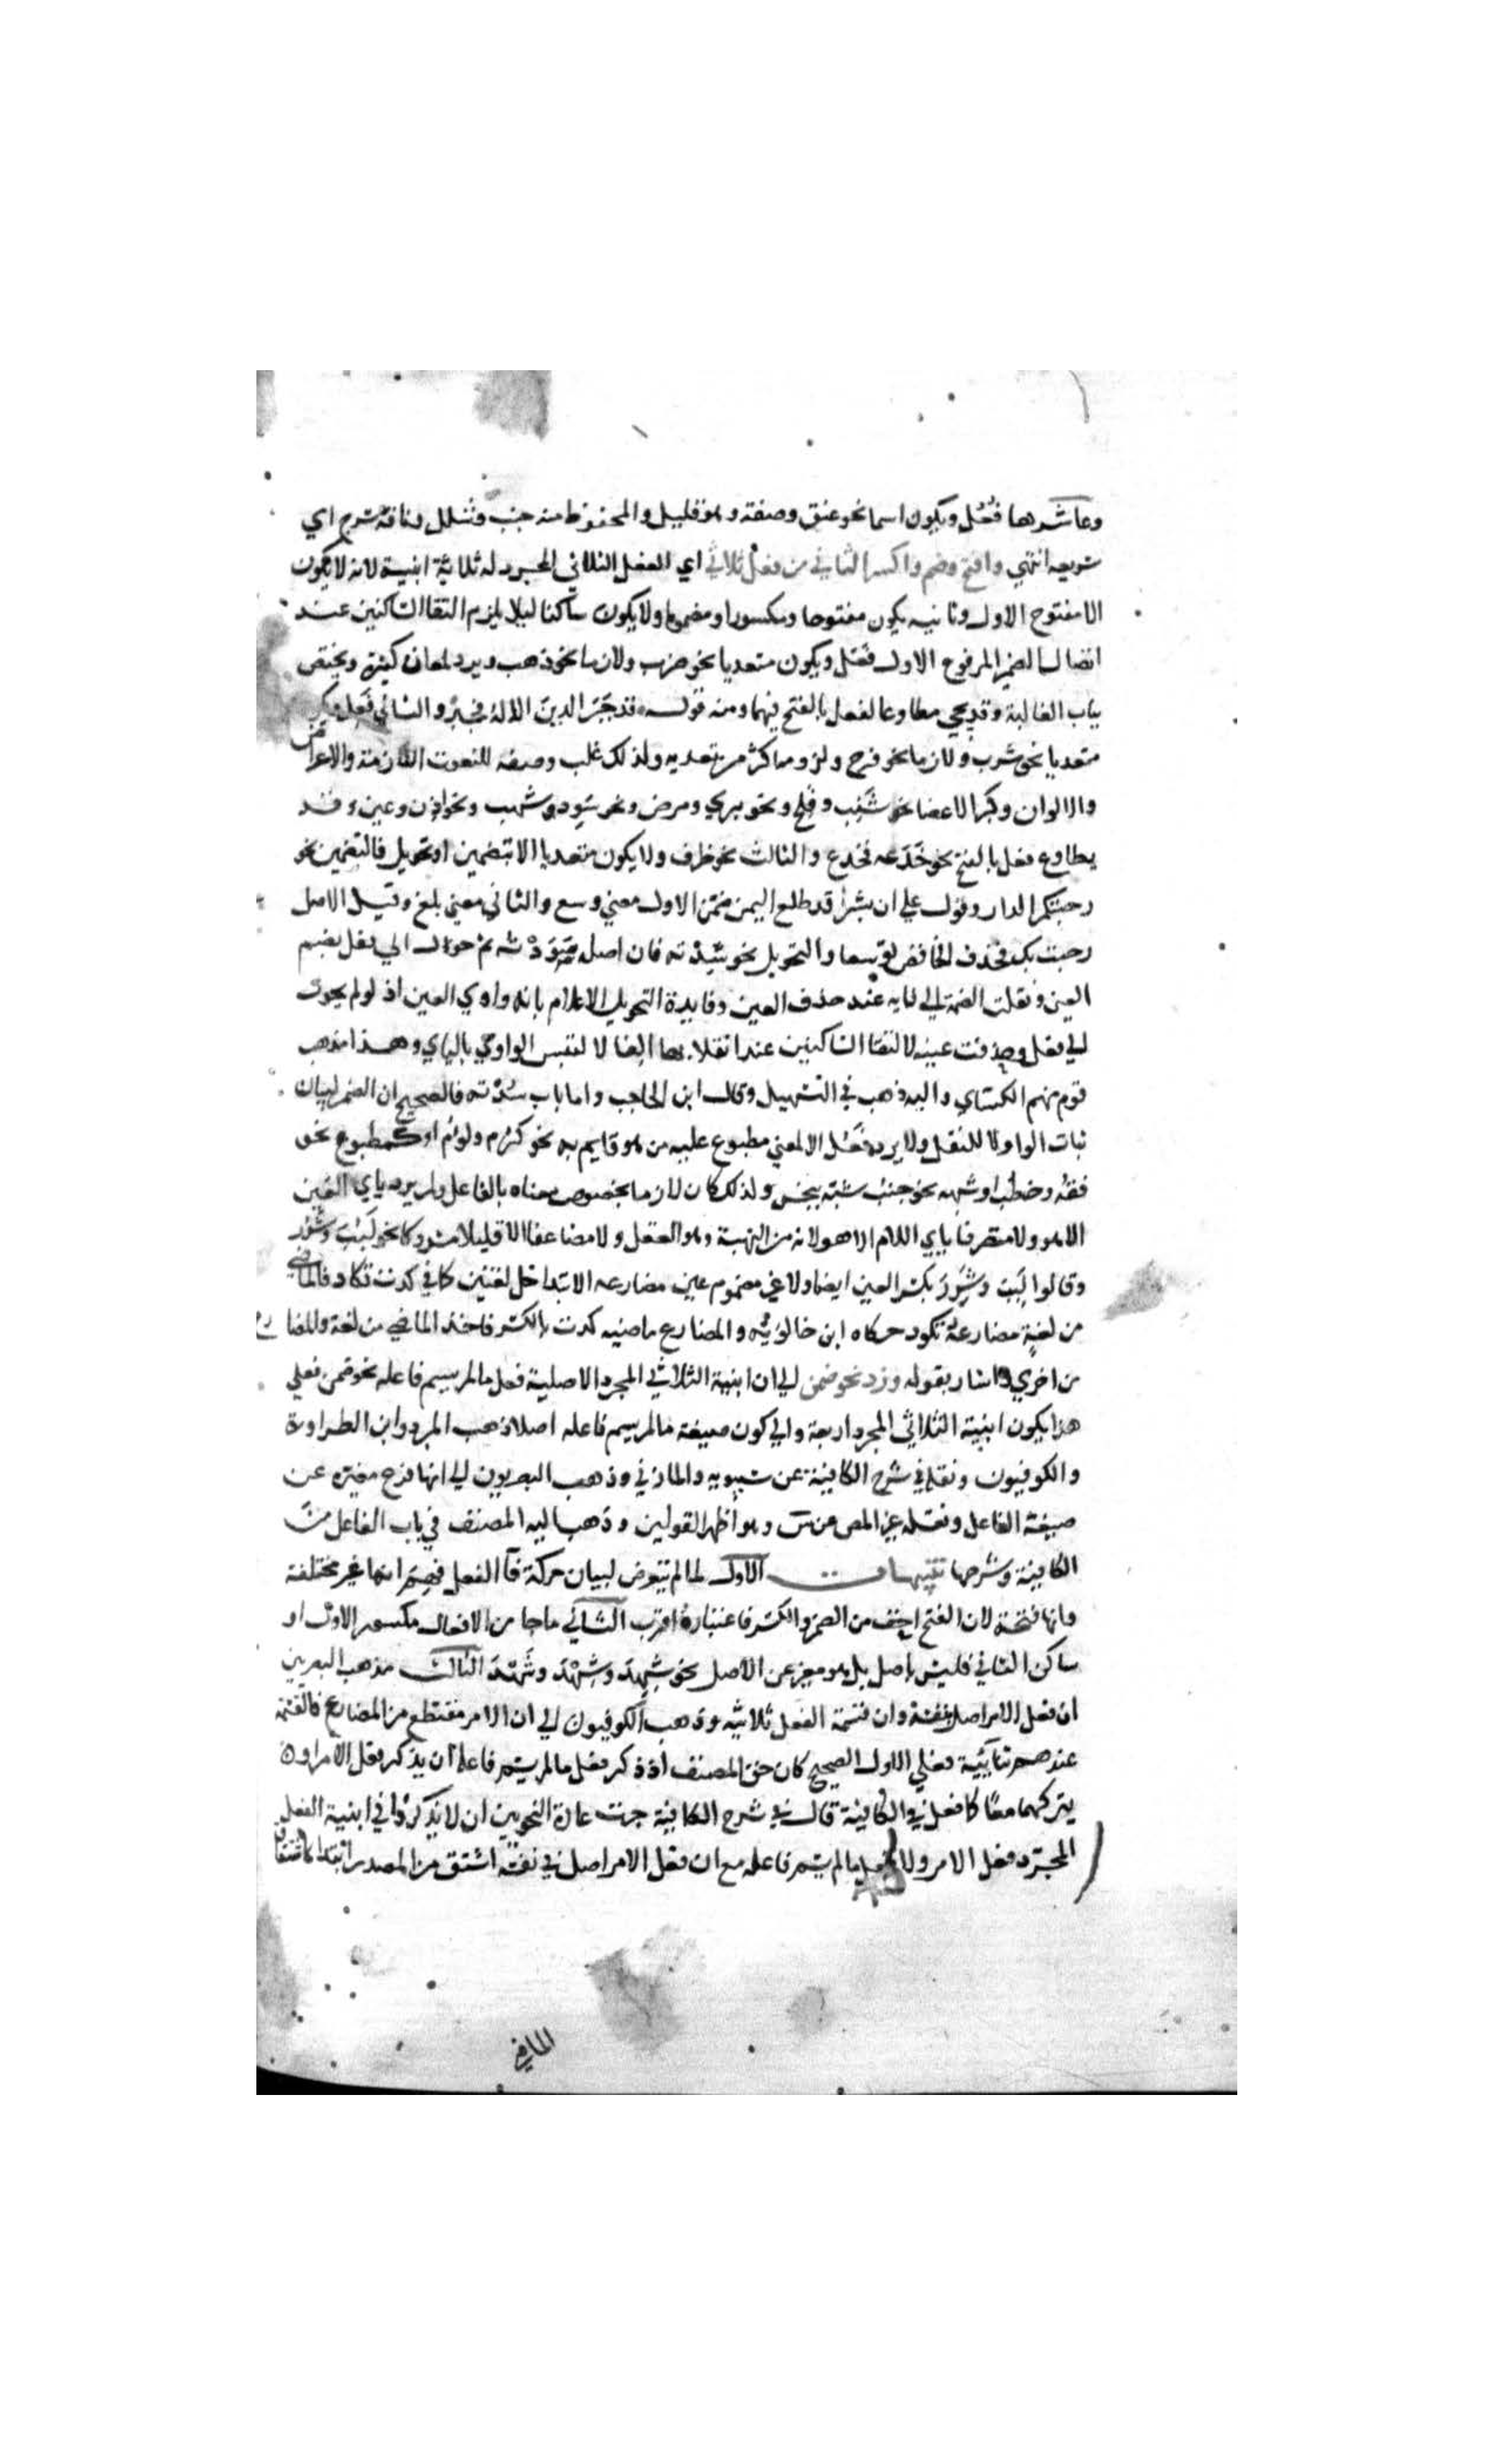 وعاشرها فُعُل ويكون اسما نحو عنق وصفة وهو قليل والمحفوظ منه جنب وشلل وناقة سرح اي
سريعة انتهي وافتح وضم واكسر الثاني من فعل ثلاثي اي الفعل الثلاثي المجرد له ثلاثة ابنية لانه لا يكون
الا مفتوح الاول وثانيه يكون مفتوحا ومكسورا ومضموما ولا يكون ساكنا ليلا يلزم التقا الساكنين عند
اتصال الضمير المرفوع الاول فَعَل ويكون متعديا نحو ضرب ولازما نحو ذهب ويرد لمعان كثيرة ويختص
بباب الغالبة وقد يجي مطاوعا لفعل بالفتح فيهما ومنه قوله قد جَبَر الدينَ الالهُ فجبر والثاني فَعِل ويكون
متعديا نحو شرب ولازما نحو فرح ولزومه اكثر من تعديه ولذلك غلب وصفه للنعوت اللازمة والاعراض
والالوان وكبر الاعضا نحو شَنِب وفَلِج ونحو بري ومرض ونحو سَوِد وشهب ونحو اذن وعين وقد
يطاوع فعل بالفتح نحو خَدَعه فخدع والثالث نحو ظرف ولا يكون متعديا الا بتضمين او تحويل فالتضمين نحو
رحبتكم الدار وقول علي ان بشرا قد طلع اليمن ضمّن الاول معني وسع والثاني معني بلغ وقيل الاصل
رحبت بكم فحذف الخافض توسعا والتحويل نحو سُدْته فان اصله سَوَدْته ثم حول الي فعل بضم
العين ونقلت الضمة الي فايه عند حذف العين وفايدة التحويل الاعلام بانه واوي العين اذ لو لم يحول
الي فعل وحذفت عينه لالتقا الساكنين عند انقلابها الفا لالتبس الواوي باليائي وهذا مذهب
قوم منهم الكسائي واليه ذهب في التسهيل وقال ابن الحاجب واما باب سُدْته فالصحيح ان الضم لبيان
نبات الواو لا للنقل ولا يرد فَعُل الا لمعني مطبوع عليه من هو قايم به نحو كرُم ولؤم او كمطبوع نحو
فقُه وخطُب او شبهه نحو جنُب شبّه بنجس ولذلك كان لازما بخصوص معناه بالفاعل ولم يرد ياي العين
الا هيو ولا متصرفا ياي اللام الا نهو لانه من النهية وهو العقل ولا مضاعفا الا قليلا مشروكا نحو لَبُبَ وشرُر
وقالوا لَبِبَ وشَرِرَ بكسر العين ايضا ولا غير مضموم عين مضارعه الا بتداخل لغتين كما في كدت تكاد فالماضي
من لغةِ مضارعهُ تكود حكاه ابن خالويه والمضارع ماضيه كدت بالكسر فاخذ الماضي من لغة والمضارع
من اخري واشار بقوله وزد نحو ضمن الي ان ابنية الثلاثي المجرد الاصلية فعل ما لم يسم فاعله نحو ضمن فعلي
هذا يكون ابنية الثلاثي المجرد اربعة والي كون صيغة ما لم يسم فاعله اصلا ذهب المبرد وابن الطراوة
والكوفيون ونقله في شرح الكافية عن سيبويه والمازني وذهب البصريون الي انها فرع مغيّره عن
صيغة الفاعل ونقله غير المص عن س وهو اظهر القولين وذهب اليه المصنف في باب الفاعل من
الكافية وشرحها تنبيهات الاول لما لم يتعرض لبيان حركة فآ الفعل فهم انها غير مختلفة
وانها فتحة لان الفتح اخف من الضم والكسر فاعتباره اقرب الثاني ما جا من الافعال مكسور الاول او
ساكن الثاني فليس باصل بل هو مغير عن الاصل نحو شِهِدَ وشِهْدَ وشَهْدَ الثالث مذهب البصريين
ان فعل الامر اصل بنفسه وان قسمة الفعل ثلاثية وذهب الكوفيون الي ان الامر مقتطع من المضارع فالقسمة
عندهم ثنائية فعلي الاول الصحيح كان حق المصنف اذ ذكر فعل ما لم يسم فاعله ان يذكر فعل الامر او ان
يتركهما معًا كما فعل في الكافية قال في شرح الكافية جرت عادة النحويين ان لا يذكروا في ابنية الفعل
المجرّد فعل الامر ولا فعل ما لم يسم فاعله مع ان فعل الامر اصل في نفسه اشتق من المصدر ابتدا كاشتقاق
الماضي